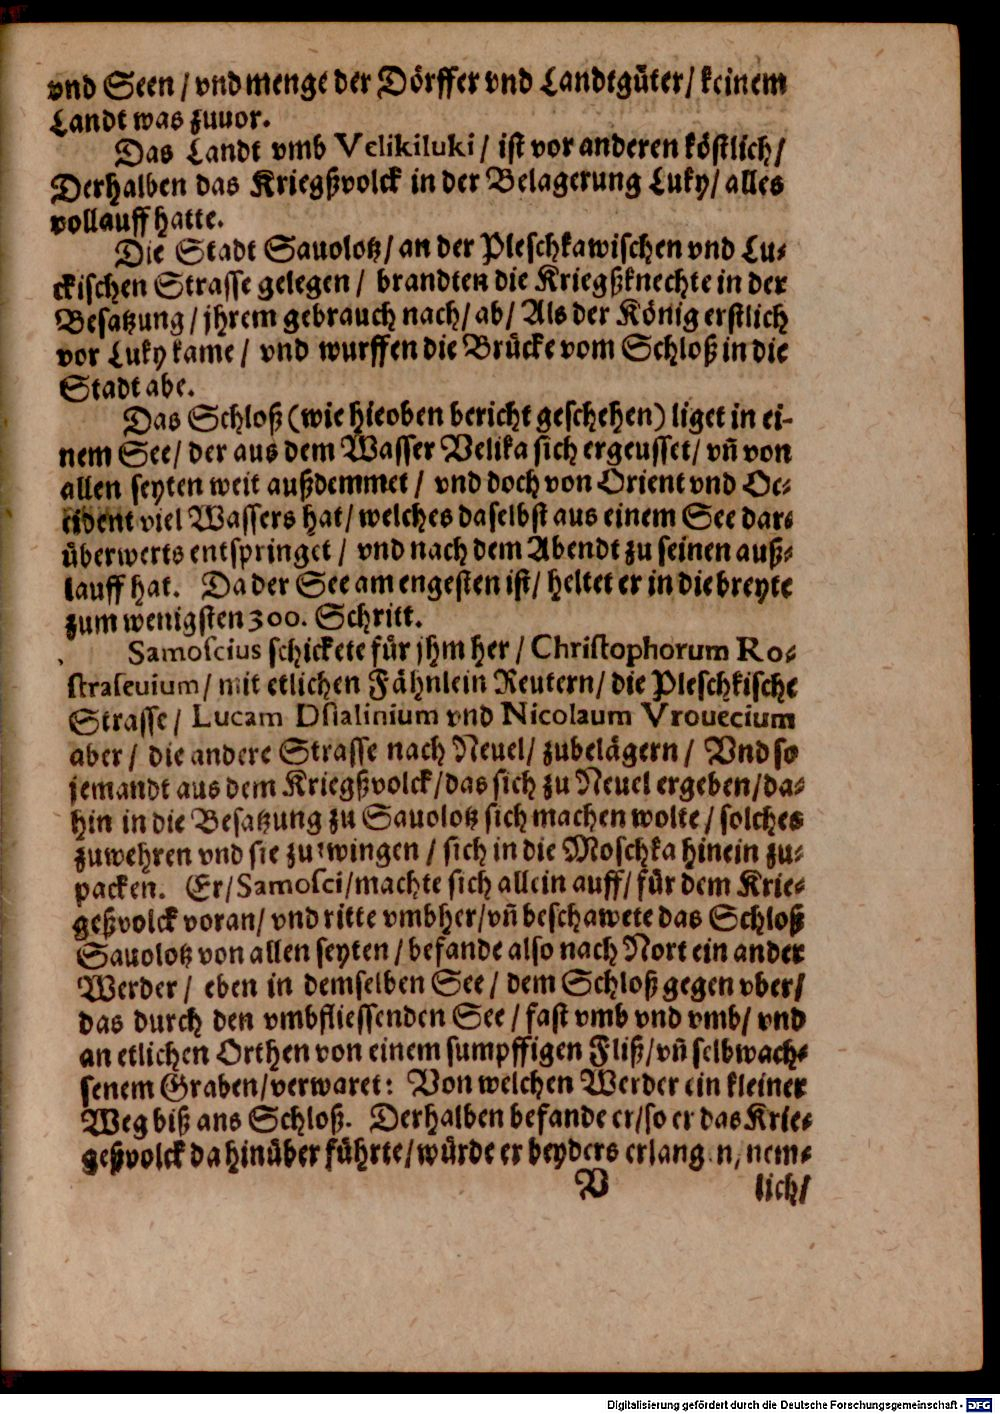 vnd Seen / vnd menge der Dörffer vnd Landtgüter / keinem
Landt was zuuor.
Das Landt vmb Velikiluki / ist vor anderen köstlich /
Derhalben das Kriegßvolck in der Belagerung Luky / alles
vollauff hatte.
Die Stadt Sauolotz / an der Pleschkawischen vnd Lu-
ckischen Strasse gelegen / brandten die Kriegßknechte in der
Besatzung / jhrem gebrauch nach / ab / Als der König erstlich
vor Luky kame / vnd wurffen die Brücke vom Schloß in die
Stadt abe.
Das Schloß (wie hieoben bericht geschehen) liget in ei-
nem See / der aus dem Wasser Velika sich ergeusset / vñ von
allen seyten weit außdemmet / vnd doch von Orient vnd Oc-
cident viel Wassers hat / welches daselbst aus einem See dar-
überwerts entspringet / vnd nach dem Abendt zu seinen auß-
lauff hat. Da der See am engesten ist / heltet er in die breyte
zum wenigsten 300. Schritt.
Samoscius schickete für jhm her / Christophorum Ro-
straseuium / mit etlichen Fähnlein Reutern / die Pleschkische
Strasse / Lucam Dsialinium vnd Nicolaum Vrouecium
aber / die andere Strasse nach Neuel / zubelägern / Vnd so
jemandt aus dem Kriegßvolck / das sich zu Neuel ergeben / da-
hin in die Besatzung zu Sauolotz sich machen wolte / solches
zuwehren vnd sie zuzwingen / sich in die Moschka hinein zu-
packen. Er / Samosci / machte sich allein auff / für dem Krie-
geßvolck voran / vnd ritte vmbher / vñ beschawete das Schloß
Sauolotz von allen seyten / befande also nach Nort ein ander
Werder / eben in demselben See / dem Schloß gegen vber /
das durch den vmbfliessenden See / fast vmb vnd vmb / vnd
an etlichen Orthen von einem sumpffigen Fliß / vñ selbwach-
senem Graben / verwaret: Von welchen Werder ein kleiner
Weg biß ans Schloß. Derhalben befande er / so er das Krie-
geßvolck da hinüber führte / würde er beyders erlangen, nem-
V lich /
Digitalisierung gefördert durch die Deutsche Forschungsgemeinschaft - DFG